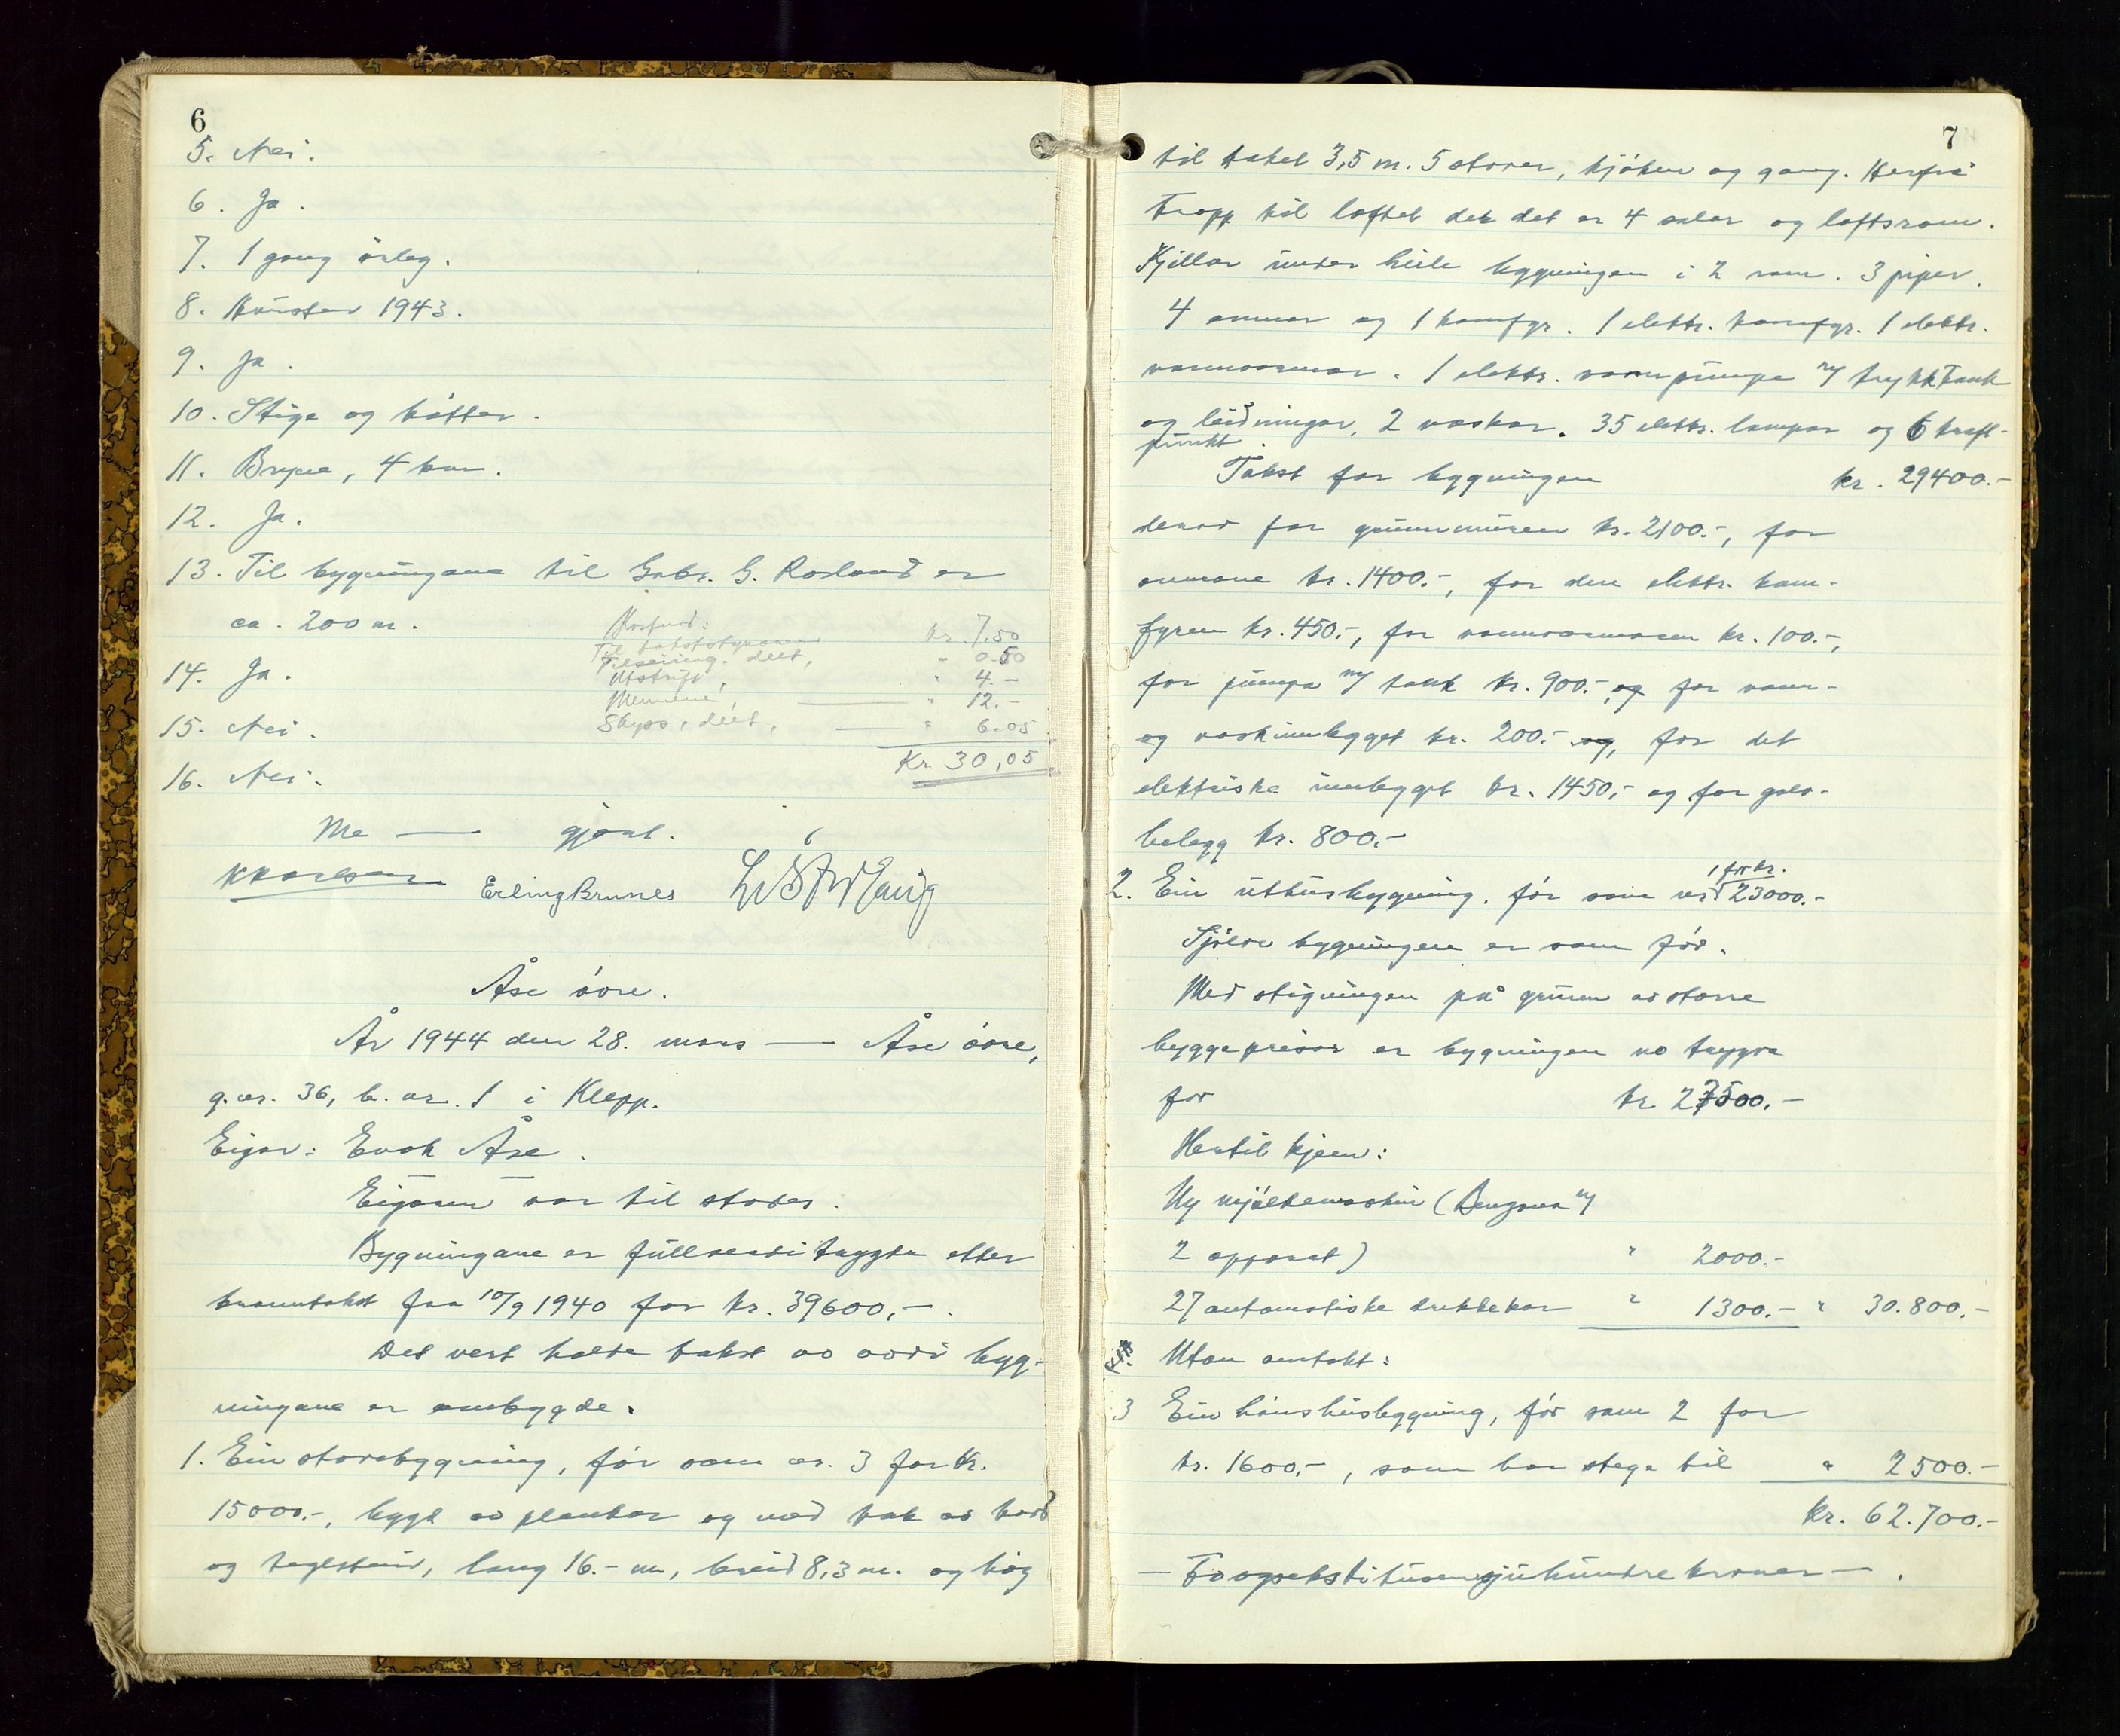 6
5. Nei.
6. Ja.
7. 1 gong årleg.
8. Hausten 1943.
9. Ja.
10. Stige og bøtter.
11. Bryne, 4 km.
12. Ja.
13. Til bygningane til Gabr. G. Rosland er
ca. 200 m.
kr. 7.50
" 0.50
Utskrift, " 4.-
Mennene, " 12.-
Skyss, delt, " 6.05
Kr. 30,05
14. Ja.
15. Nei.
16. Nei.
Me — gjort.
Erling Brunes
Åse øvre.
År 1944 den 28. mars — Åse øvre,
g.nr. 36, b.nr. 1 i Klepp.
Eigar: Enok Åse.
Eigaren var til stades.
Bygningane er fullverditrygda etter
branntakst fraa 10/9 1940 for kr. 39600,-.
Det vert halde takst av di byg-
ningane er ombygde.
1. Ein stovebygning, før som nr. 3 for kr.
15000.-, bygt av plankar og med tak av bord
og teglstein, lang 16.- m, breid 8,3 m. og høg
7
til taket 3,5 m. 5 stover, kjøken og gang. Herfrå
tropp til loftet der det er 4 salar og loftsrom.
Kjellar under heile bygningen i 2 rom. 3 piper.
4 omnar og 1 komfyr. 1 elektr. komfyr. 1 elektr.
vannvarmar. 1 elektr. vannpumpe m/ trykktank
og leidningar, 2 vaskar. 35 elektr. lampor og 6 kraft-
punkt.
Takst for bygningen kr. 29400.-
derav for grunnmuren kr. 2100.-, for
omnane kr. 1400.-, for den elektr. kom-
fyren kr. 450.-, for vannvarmaren kr. 100.-,
for pumpa m/ tank kr. 900.-, og for vann-
og vaskinnlegget kr. 200.- og, for det
elektriske innlegget kr. 1450,- og for golv-
belegg kr. 800.-
2. Ein uthusbygning, før som nr. 1 for kr. 23000.-
Sjølve bygningen er som før.
Med stigningen på grunn av større
byggeprisar er bygningen no trygda
for kr 27500.-
Hertil kjem:
Ny mjølkemaskin ( m/
2 apparat) " 2000.-
27 automatiske drikkekar " 1300.- " 30.800.-
Utan omtakt:
3 Ein hønshusbygning, før som 2 for
kr. 1600,-, som har stege til " 2500.-
Kr. 62.700.-
— Toogsekstitusensjuhundre kroner —.